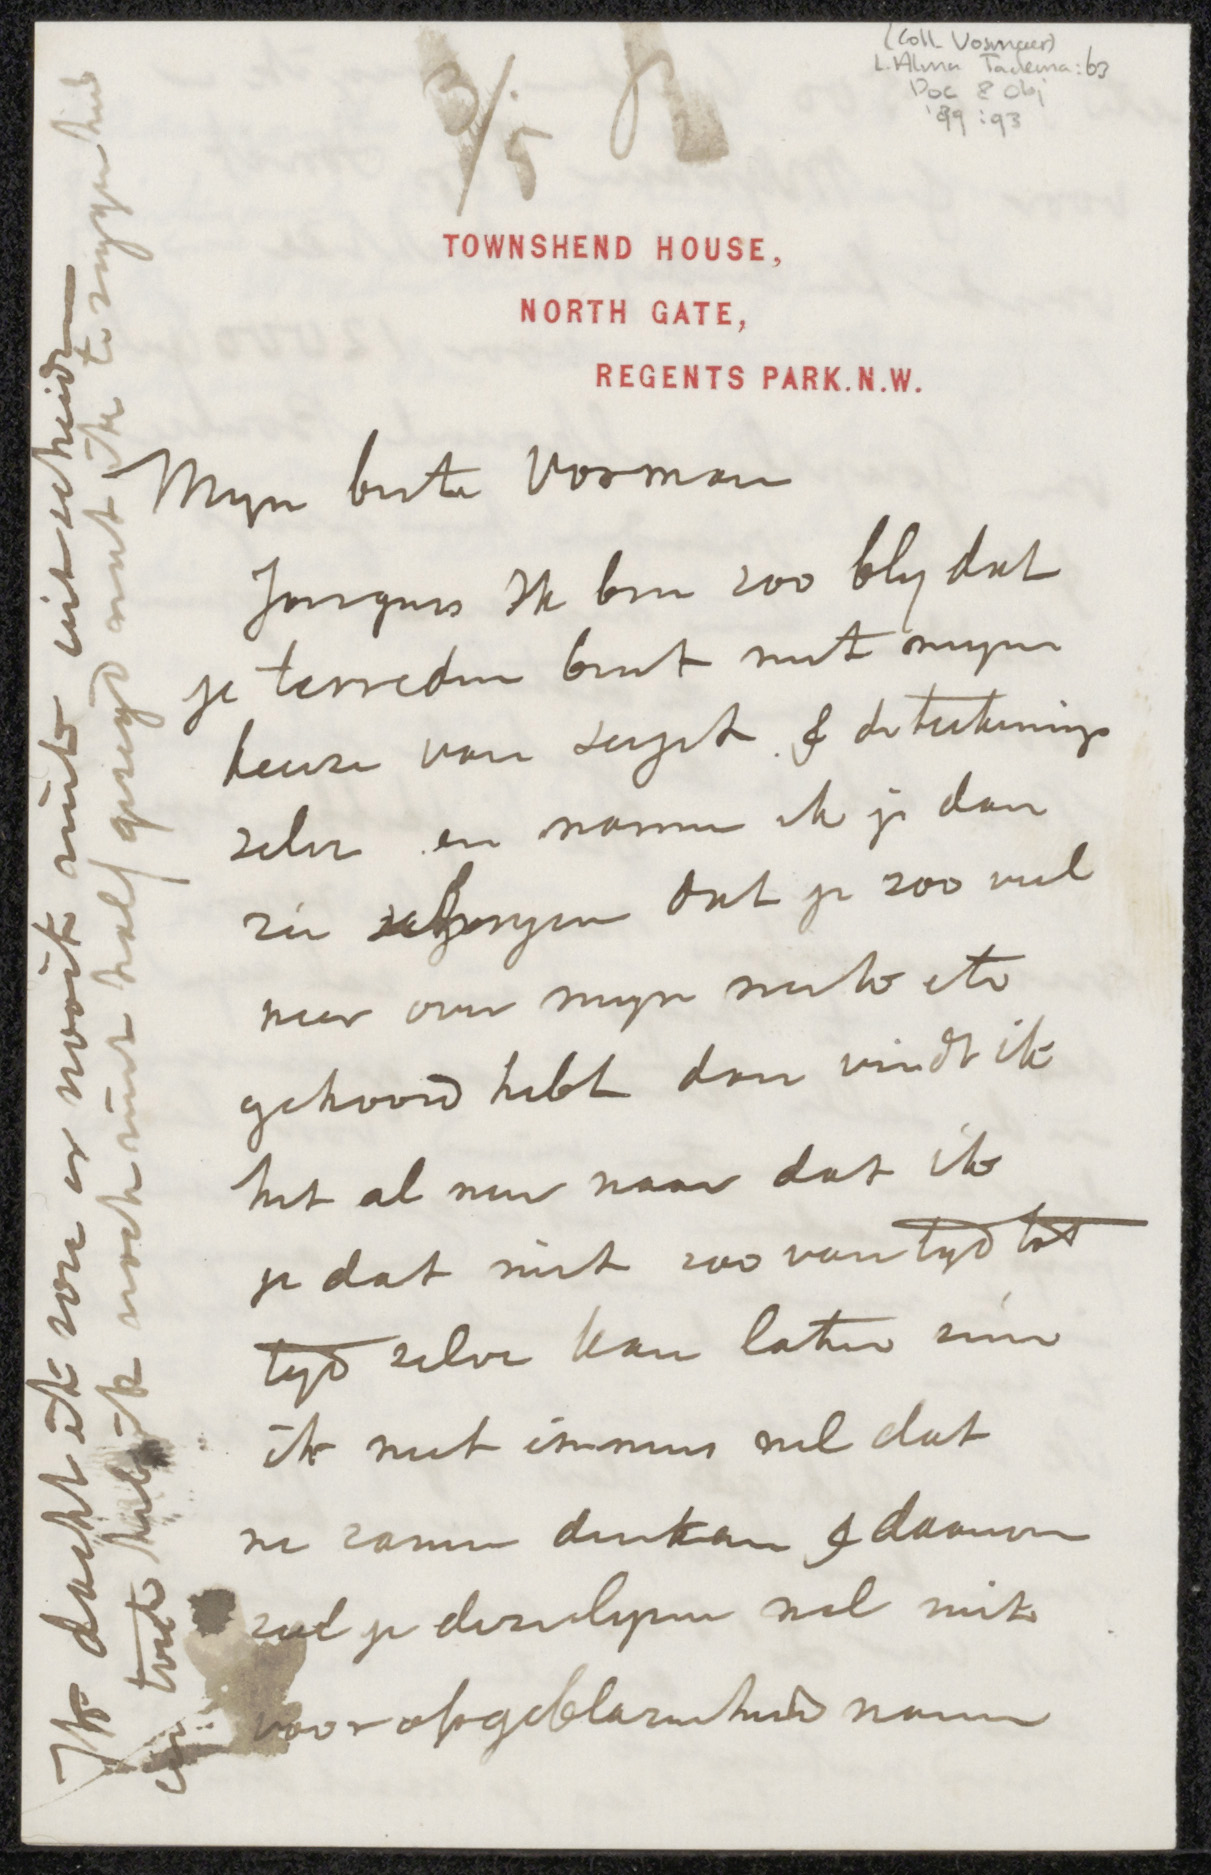 (Coll Vosmaer)
L. Alma Tadema: 63
Doc & Obj
'99 : 93
3/5
TOWNSHEND HOUSE,
NORTH GATE,
REGENTS PARK. N.W.
Myn beste Vosman
Jongens Ik ben zoo bly dat
je tevreden bent met myne
keuze van & de teekenings
zelve en wanneer ik je dan
zie dat je zoo veel
meer over myn werk etc
gehoord hebt dan vindt ik
het al meer naar dat ik
je dat niet zoo van tyd tot
tyd zelve kan laten zien
ik weet immers wel dat
we samen denken & daarom
zul je dezelijnen wel niet
voor opgeblazenheid nemen
Ik dacht ik zou er nooit mede uitscheiden
en toch heb ik noch niet half gezegd wat ik te zeggen heb